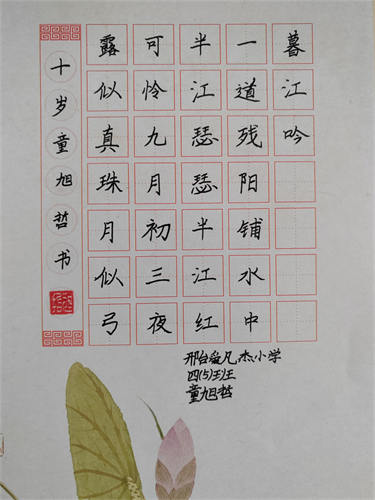 暮江吟
一道残阳铺水中
半江瑟瑟半江红
可怜九月初三夜
露似真珠月似弓
十岁童旭哲书
邢台爱凡杰小学
四(5)班
童旭哲